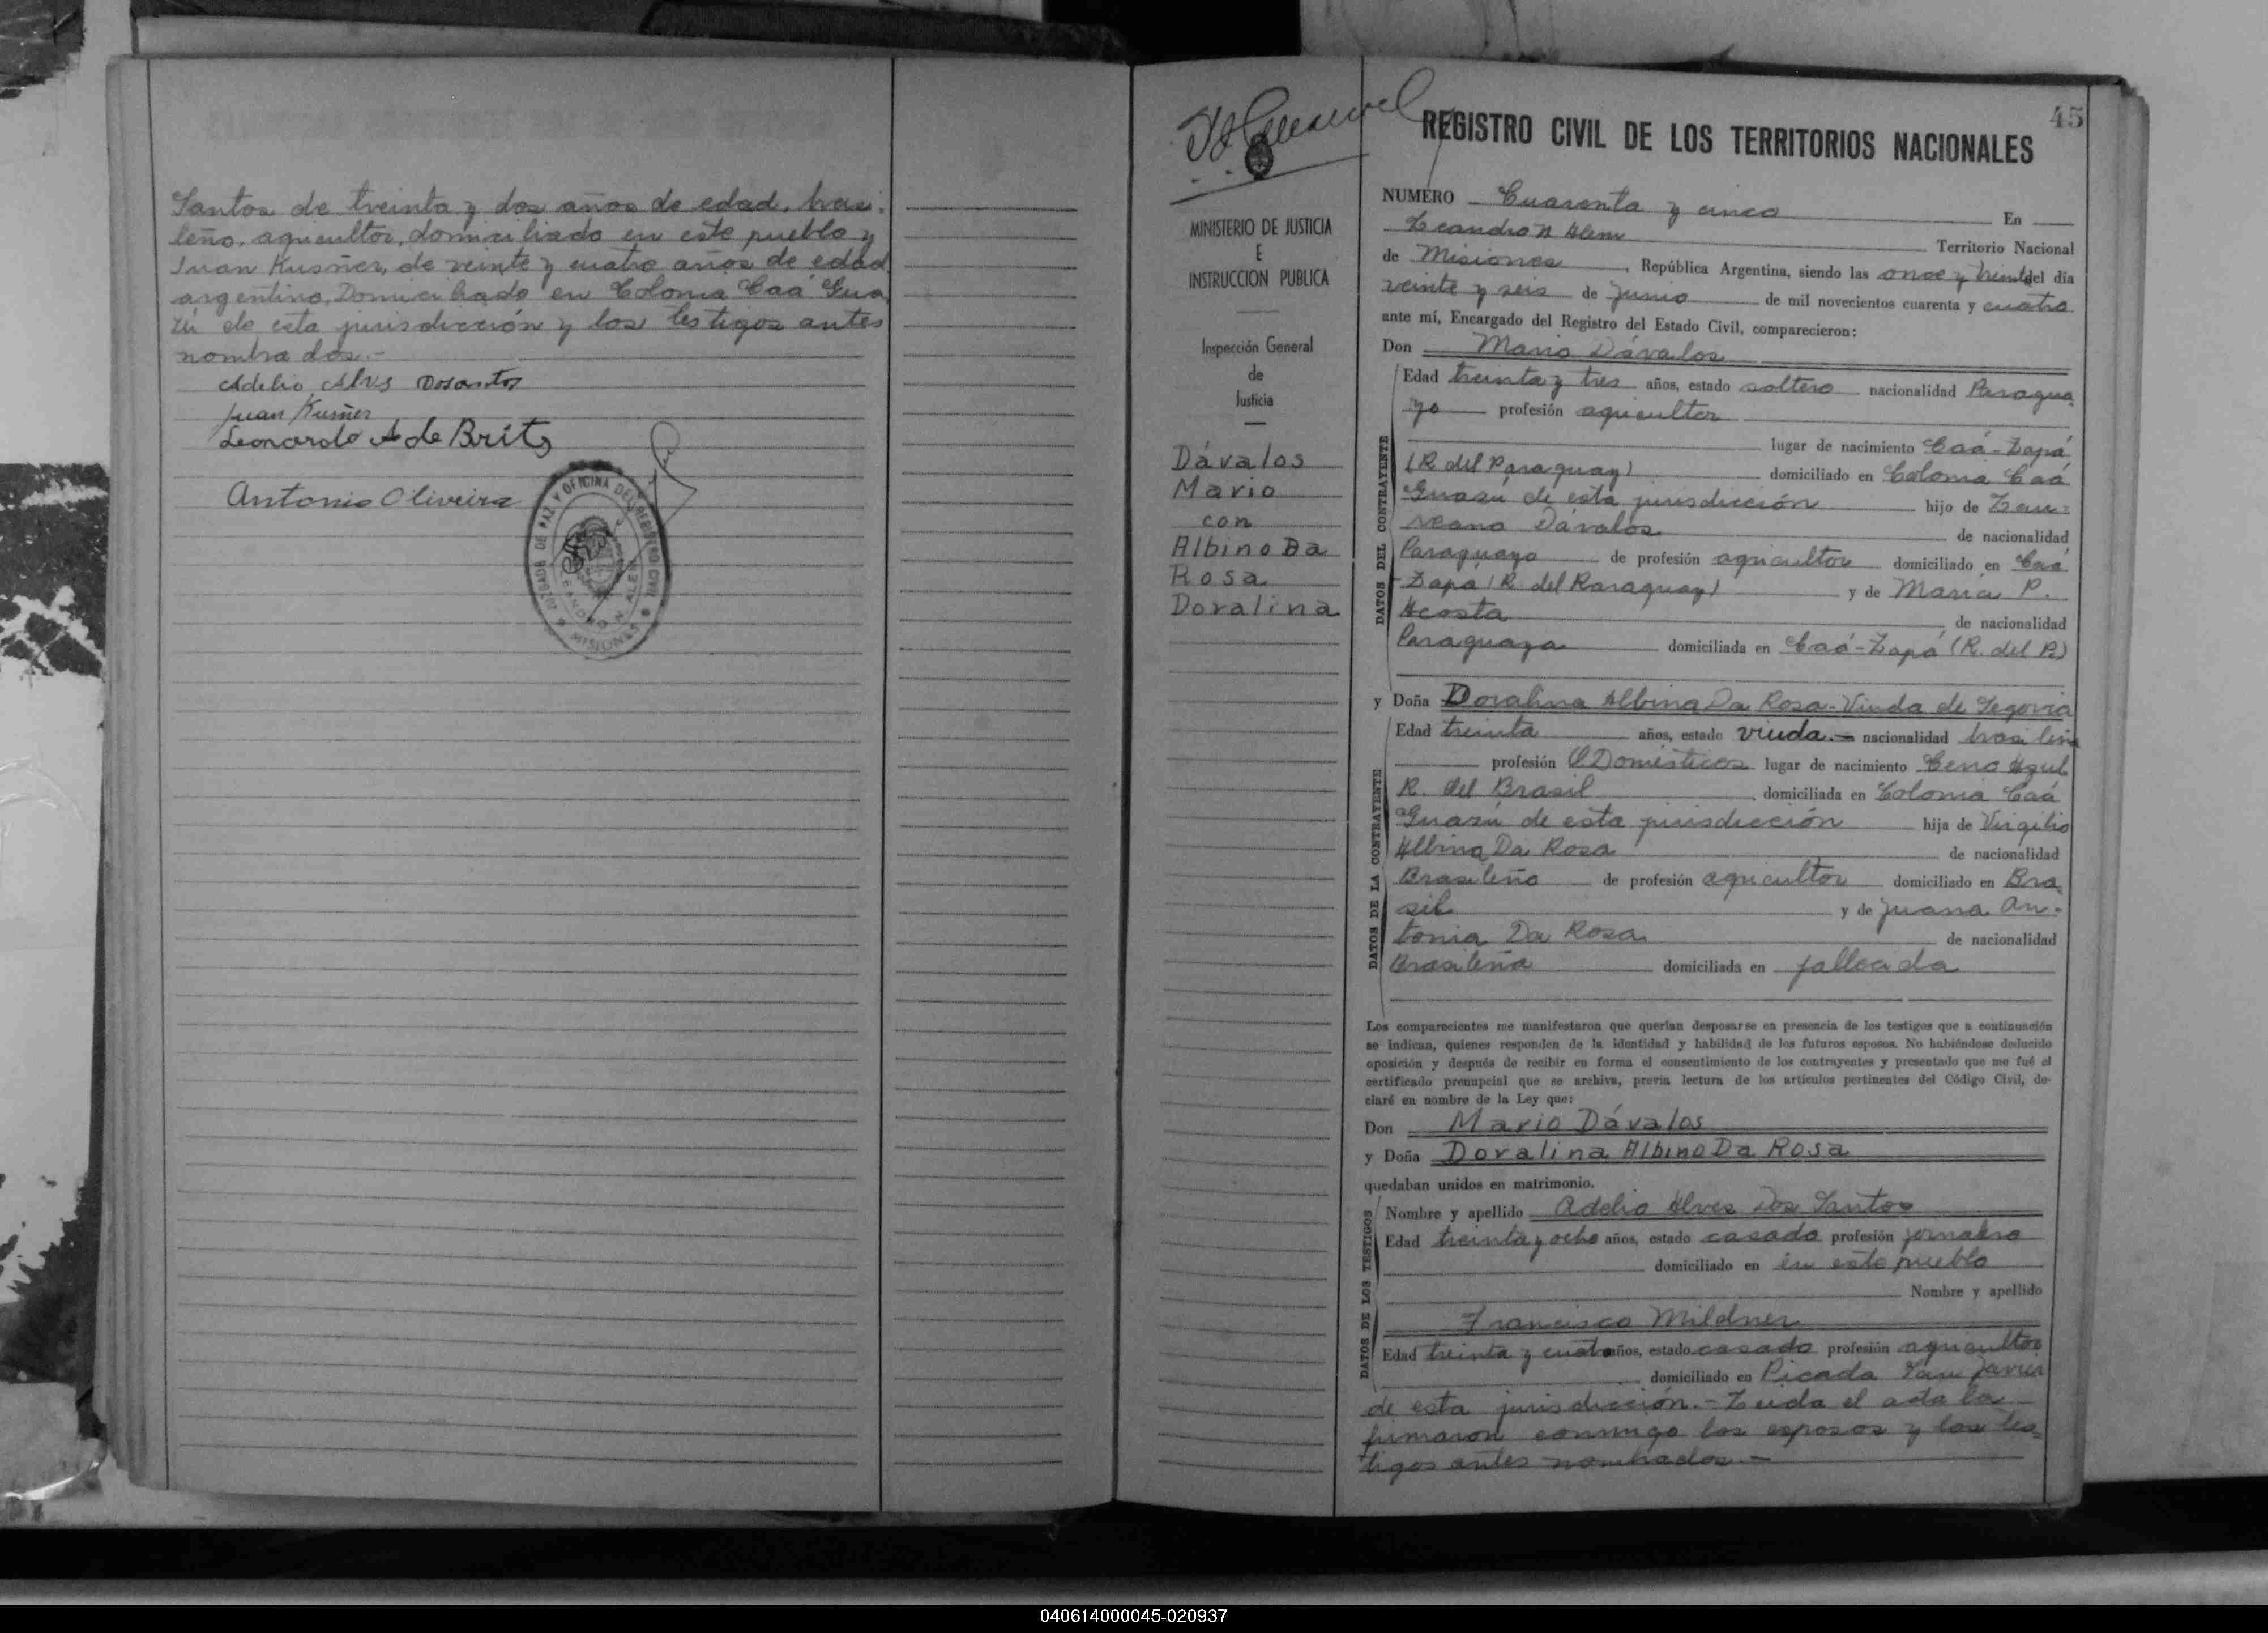 Santos de treinta y dos años de edad, brasi-
leño, agricultor, domiciliado en este pueblo y
Juan Kusñer, de veinte y cuatro años de edad
argentino, Domiciliado en Colonia Caá Gua
zú de esta jurisdicción y los testigos antes
nombrados.-
Adelio Alvs Dosantos
Juan Kusñer
Leonardo A de Brito
Antonio Oliveira
JUZGADO DE PAZ Y OFICINA DEL REGISTRO CIVIL
LEANDRO N. ALEM
MISIONES
45
REGISTRO CIVIL DE LOS TERRITORIOS NACIONALES
MINISTERIO DE JUSTICIA
E
INSTRUCCION PUBLICA
Inspección General
de
Justicia
Dávalos
Mario
con
Albino Da
Rosa
Doralina
NUMERO Cuarenta y cinco En
Leandro N Alem Territorio Nacional
de Misiones, República Argentina, siendo las once y treinta del día
veinte y seis de junio de mil novecientos cuarenta y cuatro
ante mí, Encargado del Registro del Estado Civil, comparecieron:
Don Mario Dávalos
DATOS DEL CONTRAYENTE
Edad treinta y tres años, estado soltero nacionalidad Paragua
yo profesión agricultor
lugar de nacimiento Caá-Zapá
(R. del Paraguay) domiciliado en Colonia Caá
Guazú de esta jurisdicción hijo de Lau-
reano Dávalos de nacionalidad
Paraguayo de profesión agricultor domiciliado en Caá
Zapá (R. del Paraguay) y de María P.
Acosta de nacionalidad
Paraguaya domiciliada en Caá-Zapá (R. del P.)
y Doña Doralina Albino Da Rosa-Viuda de Segovia
DATOS DE LA CONTRAYENTE
Edad treinta años, estado viuda.- nacionalidad brasileña
profesión Q Domésticos lugar de nacimiento Cerro Azul
R. del Brasil domiciliada en Colonia Caá
Guazú de esta jurisdicción hija de Virgilio
Albino Da Rosa de nacionalidad
Brasileño de profesión agricultor domiciliado en Bra
sil y de Juana An-
tonia Da Rosa de nacionalidad
Brasileña domiciliada en fallecida
Los comparecientes me manifestaron que querían desposarse en presencia de los testigos que a continuación
se indican, quienes responden de la identidad y habilidad de los futuros esposos. No habiéndose deducido
oposición y después de recibir en forma el consentimiento de los contrayentes y presentado que me fué el
certificado prenupcial que se archiva, previa lectura de los artículos pertinentes del Código Civil, de-
claré en nombre de la Ley que:
Don Mario Dávalos
y Doña Doralina Albino Da Rosa
quedaban unidos en matrimonio.
DATOS DE LOS TESTIGOS
Nombre y apellido Adelio Alves Dos Santos
Edad treinta y ocho años, estado casado profesión jornalero
domiciliado en en este pueblo
Nombre y apellido
Francisco Mildner
Edad treinta y cuatro años, estado casado profesión agricultor
domiciliado en Picada San Javier
de esta jurisdicción.- Leida el acta la
firmaron conmigo los esposos y los tes-
tigos antes nombrados.-
040614000045-020937